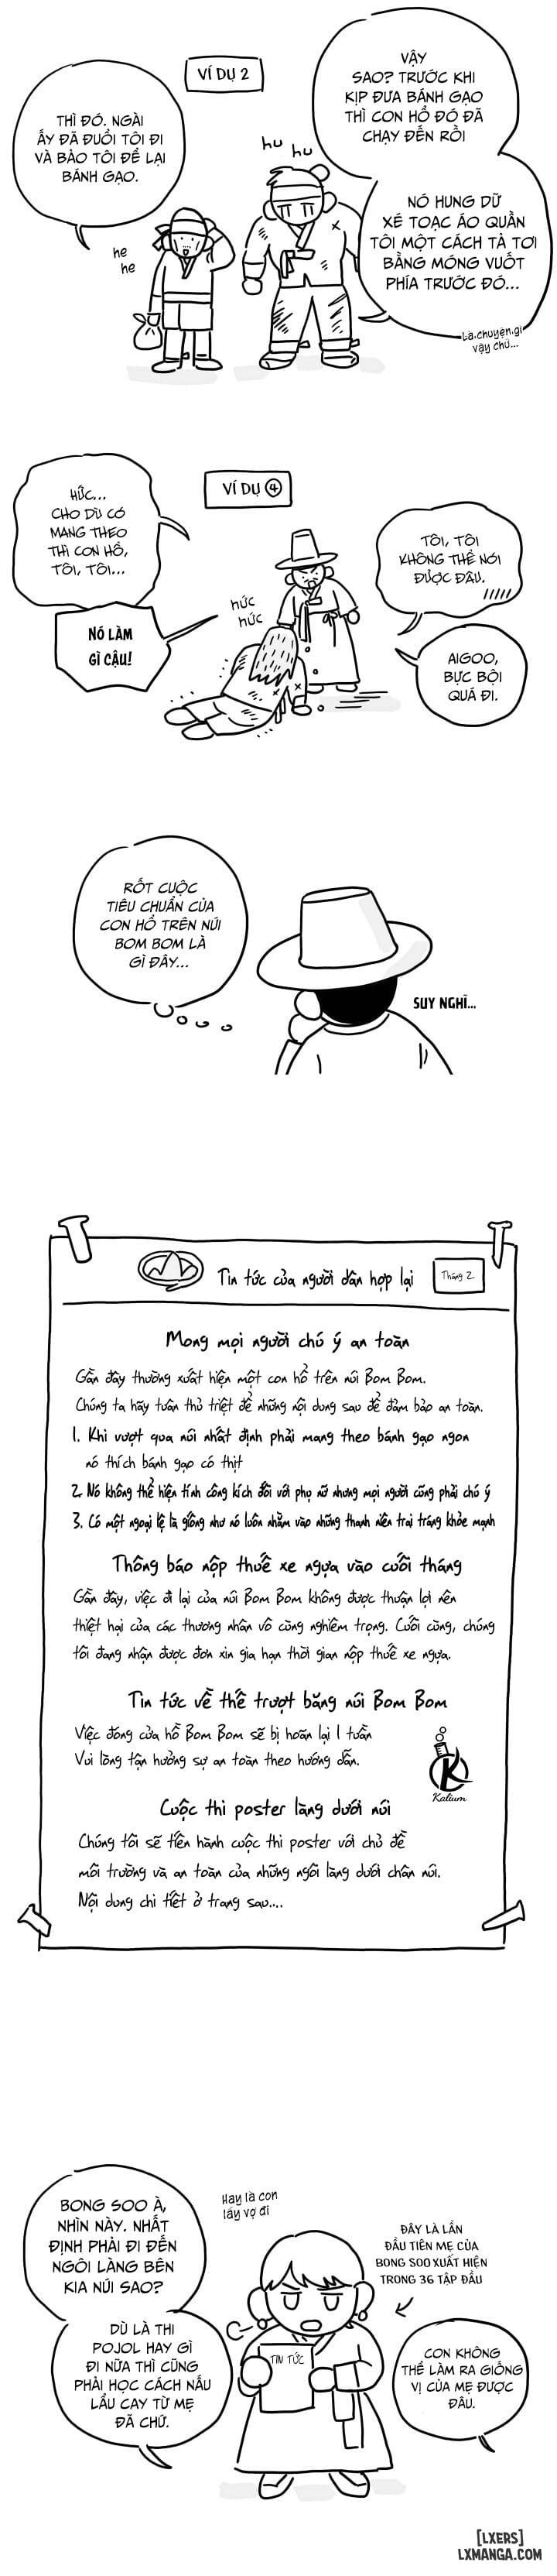 VÍ DỤ 2
VẬY
SAO? TRƯỚC KHI
KỊP ĐƯA BÁNH GẠO
THÌ CON HỔ ĐÓ ĐÃ
CHẠY ĐẾN RỒI
THÌ ĐÓ. NGÀI
ẤY ĐÃ ĐUỔI TÔI ĐI
VÀ BẢO TÔI ĐỂ LẠI
BÁNH GẠO.
hu hu
NÓ HUNG DỮ
XÉ TOẠC ÁO QUẦN
TÔI MỘT CÁCH TẢ TƠI
BẰNG MÓNG VUỐT
PHÍA TRƯỚC ĐÓ...
he
he
Là chuyện gì
vậy chứ...
VÍ DỤ 4
HỨC...
CHO DÙ CÓ
MANG THEO
THÌ CON HỔ,
TÔI, TÔI...
TÔI, TÔI
KHÔNG THỂ NÓI
ĐƯỢC ĐÂU.
NÓ LÀM
GÌ CẬU!
hức
hức
AIGOO,
BỰC BỘI
QUÁ ĐI.
RỐT CUỘC
TIÊU CHUẨN CỦA
CON HỔ TRÊN NÚI
BOM BOM LÀ
GÌ ĐÂY...
SUY NGHĨ...
Tin tức của người dân hợp lại
Tháng 2
Mong mọi người chú ý an toàn
Gần đây thường xuất hiện một con hổ trên núi Bom Bom.
Chúng ta hãy tuân thủ triệt để những nội dung sau để đảm bảo an toàn.
1. Khi vượt qua núi nhất định phải mang theo bánh gạo ngon
nó thích bánh gạo có thịt
2. Nó không thể hiện tính công kích đối với phụ nữ nhưng mọi người cũng phải chú ý
3. Có một ngoại lệ là giống như nó luôn nhằm vào những thanh niên trai tráng khỏe mạnh
Thông báo nộp thuế xe ngựa vào cuối tháng
Gần đây, việc đi lại của núi Bom Bom không được thuận lợi nên
thiệt hại của các thương nhân vô cùng nghiêm trọng. Cuối cùng, chúng
tôi đang nhận được đơn xin gia hạn thời gian nộp thuế xe ngựa.
Tin tức về thế trượt băng núi Bom Bom
Việc đóng cửa hồ Bom Bom sẽ bị hoãn lại 1 tuần
Vui lòng tận hưởng sự an toàn theo hướng dẫn.
K
Kalium
Cuộc thi poster làng dưới núi
Chúng tôi sẽ tiến hành cuộc thi poster với chủ đề
môi trường và an toàn của những ngôi làng dưới chân núi.
Nội dung chi tiết ở trang sau....
BONG SOO À,
NHÌN NÀY. NHẤT
ĐỊNH PHẢI ĐI ĐẾN
NGÔI LÀNG BÊN
KIA NÚI SAO?
Hay là con
lấy vợ đi
ĐÂY LÀ LẦN
ĐẦU TIÊN MẸ CỦA
BONG SOO XUẤT HIỆN
TRONG 36 TẬP ĐẦU
DÙ LÀ THI
POJOL HAY GÌ
ĐI NỮA THÌ CŨNG
PHẢI HỌC CÁCH NẤU
LẨU CAY TỪ MẸ
ĐÃ CHỨ.
TIN TỨC
CON KHÔNG
THỂ LÀM RA GIỐNG
VỊ CỦA MẸ ĐƯỢC
ĐÂU.
[LXERS]
LXMANGA.COM